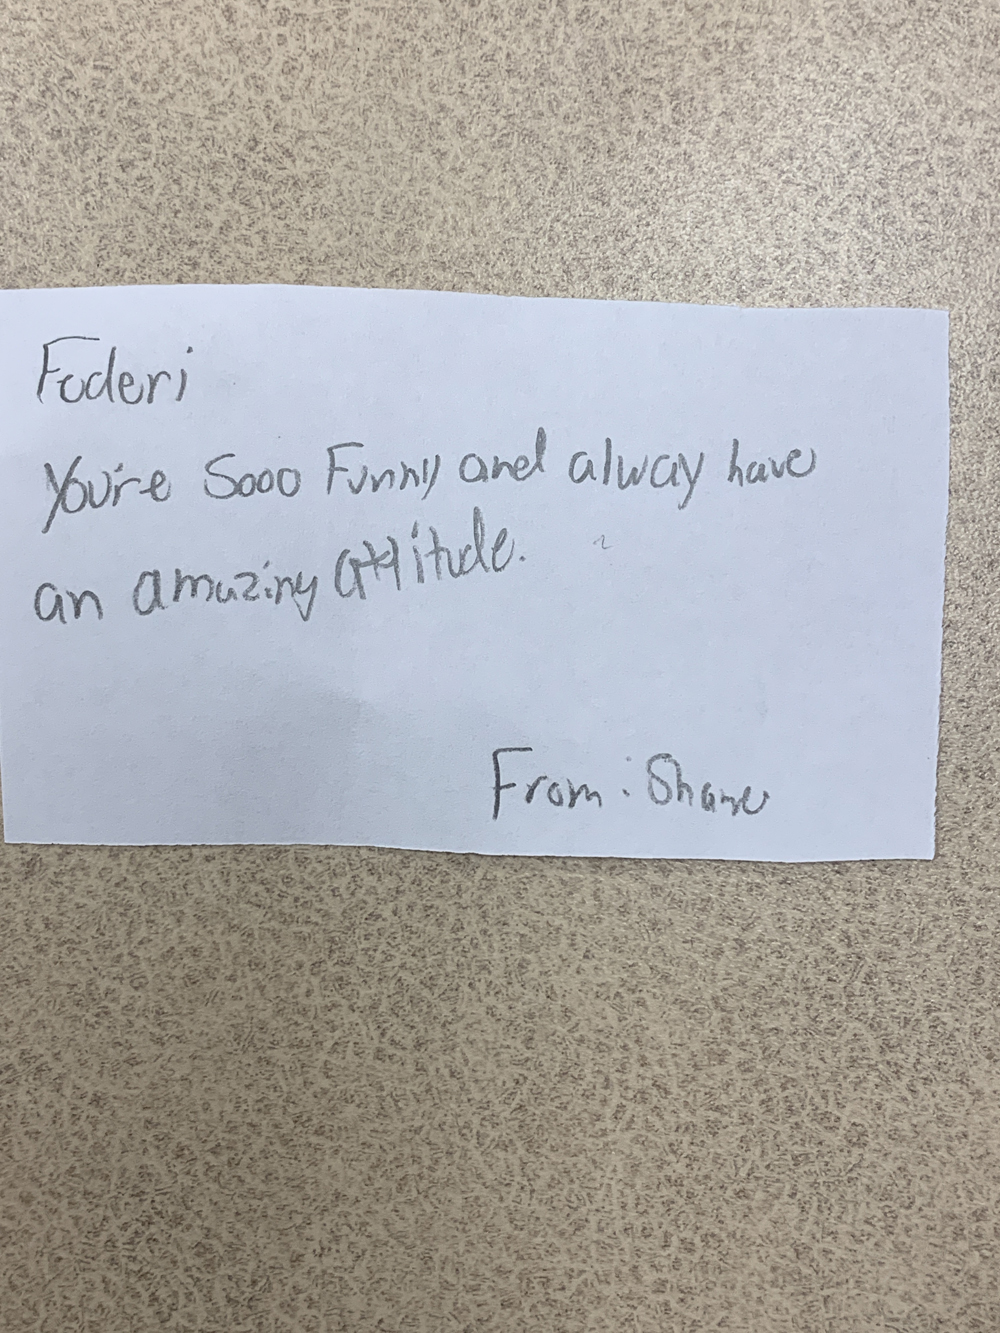 Foderi
You're Sooo Funny and alway have
an amazing attitude.
From: Shane